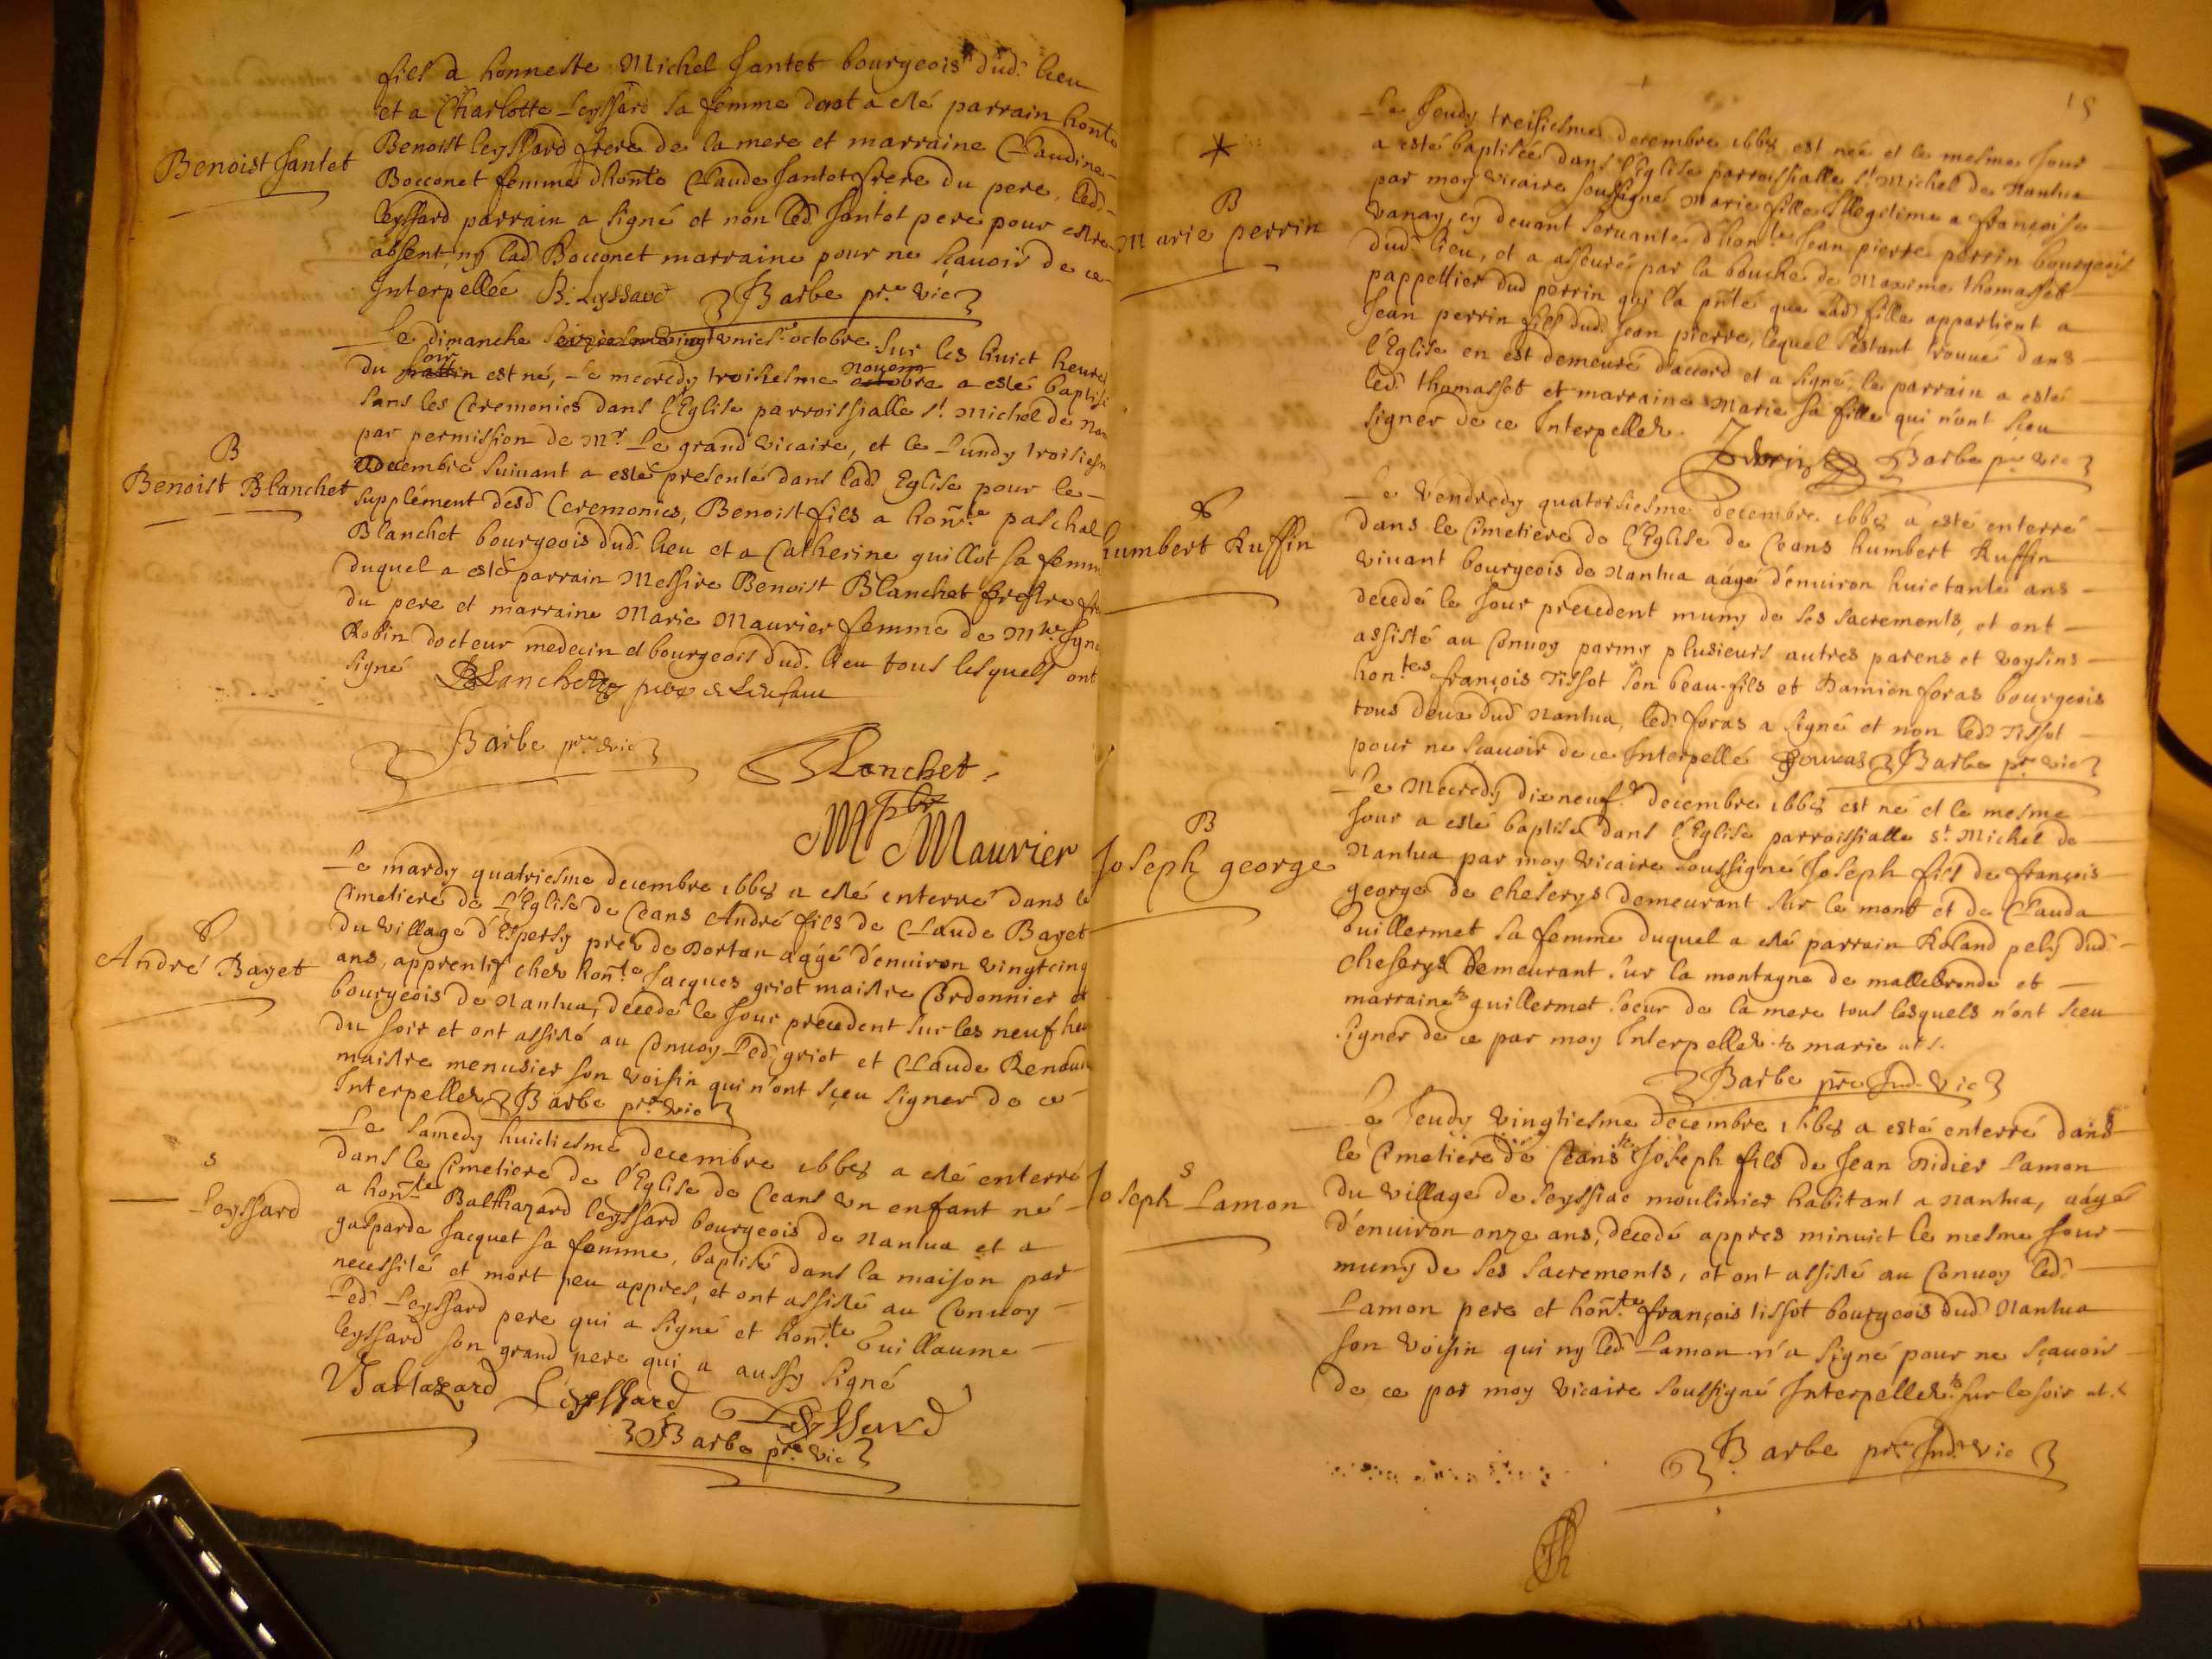 fils a honneste Michel Jantet bourgeois dud. lieu
et a Charlotte Leyssard sa femme dont a esté parrain honte
Benoist Jantet
Benoist leyssard frere de la mere et marraine Claudine
Bocconet femme dhonte Claude Jantet frere du pere, led.
leyssard parrain a signé et non led Jantet pere pour estre
absent, ny lad Bocconet marraine pour ne sçauoir de ce
Interpellée B. Leyssard Barbe pre vic
Le dimanche vingt vniesme octobre sur les huict heures
du soir est né, Le mecredy troisiesme nouem a esté baptisé
sans les Ceremonies dans l'Eglise parroissialle st Michel de Nan
par permission de Mr Le grand vicaire, et le Lundy troisiesm
B
Benoist Blanchet
decembre suiuant a esté presenté dans lad Eglise pour le
supplément desd Ceremonies, Benoist fils a honte paschal
Blanchet bourgeois dud. lieu et a Catherine guillot sa femm
duquel a esté parrain Messire Benoist Blanchet prestre
du pere et marraine Marie Maurier femme de Mre
Robin docteur medecin et bourgeois dud. lieu tous lesquels ont
signé Blanchet
Barbe pre vic
Blanchet
M Maurier
Le mardy quatriesme decembre 1668 a esté enterré dans le
Cimetiere de l'Eglise de Ceans André fils de Claude Bayet
S
André Bayet
du village d'Espersy pres de Dortan aagé d'enuiron vingtcinq
ans, apprentif chez honte Jacques griot maistre Cordonnier et
bourgeois de Nantua, decedé le Jour precedent sur les neuf heu
du soir et ont assisté au Conuoy Led. griot et Claude Renaud
maistre menusier son voisin qui n'ont sçeu signer de ce
Interpellez Barbe pre vic
Le samedy huictiesme decembre 1668 a esté enterré
dans le Cimetiere de l'Eglise de Ceans vn enfant né
S
Leyssard
a honte Balthazard leyssard bourgeois de Nantua et a
gasparde Jacquet sa femme, baptisé dans la maison par
necessité et mort peu appres, et ont assisté au Conuoy
Led. Leyssard pere qui a signé et honte Guillaume
leyssard son grand pere qui a aussy signé
Baltazard Leyssard Leyssard
Barbe pre vic
15
Le Jeudy treisiesme decembre 1668 est née et le mesme Jour
a esté baptisée dans l'Eglise parroissialle st Michel de Nantua
B
Marie perrin
par moy vicaire soussigné Marie fille Illegitime a françoise
vanay, cy deuant seruante d'honte Jean pierre perrin bourgeois
dud. lieu, et a asseuré par la bouche de Maxime thomasset
pappettier dud perrin qui l'a pnté que lad fille appartient a
Jean perrin fils dud. Jean pierre, lequel s'estant trouué dans
l'Eglise en est demeuré d'accord et a signé, le parrain a esté
led. thomasset et marraine Marie sa fille qui n'ont sceu
signer de ce Interpellez.
Barbe pre vic
Le vendredy quatorsiesme decembre 1668 a esté enterré
S
humbert Ruffin
dans le Cimetiere de l'Eglise de Ceans humbert Ruffin
viuant bourgeois de Nantua aagé d'enuiron huictante ans
decedé le Jour precedent muny de ses sacrements, et ont
assisté au Conuoy parmy plusieurs autres parens et voysins
hontes françois Tissot son beau-fils et Damien foras bourgeois
tous deux dud Nantua, led. foras a signé et non led. Tissot
pour ne sçauoir de ce Interpellé Barbe pre vic
Le Mecredy dixneufe decembre 1668 est né et le mesme
B
Joseph george
Jour a esté baptisé dans l'Eglise parroissialle st Michel de
Nantua par moy vicaire soussigné Joseph fils de françois
george de cheserys demeurant sur le mont et de Clauda
Guillermet sa femme duquel a esté parrain Roland pely dud
cheserys demeurant sur la montagne de mallebronde et
marraine guillermet soeur de la mere tous lesquels n'ont sceu
signer de ce par moy Interpellez. marie ut s.
Barbe pre Ind. vic
Le Jeudy vingtiesme decembre 1668 a esté enterré dans
S
Joseph Lamon
le Cimetiere de Ceans Joseph fils de Jean Didier Lamon
du village de leyssiac moulinier habitant a Nantua, aagé
d'enuiron onze ans, decedé appres minuict le mesme Jour
muny de ses sacrements, et ont assisté au Conuoy led.
Lamon pere et honte françois tissot bourgeois dud Nantua
son voisin qui ny led Lamon n'a signé pour ne sçauoir
de ce par moy vicaire soussigné Interpellez. sur le soir ut s
Barbe pre Ind. vic